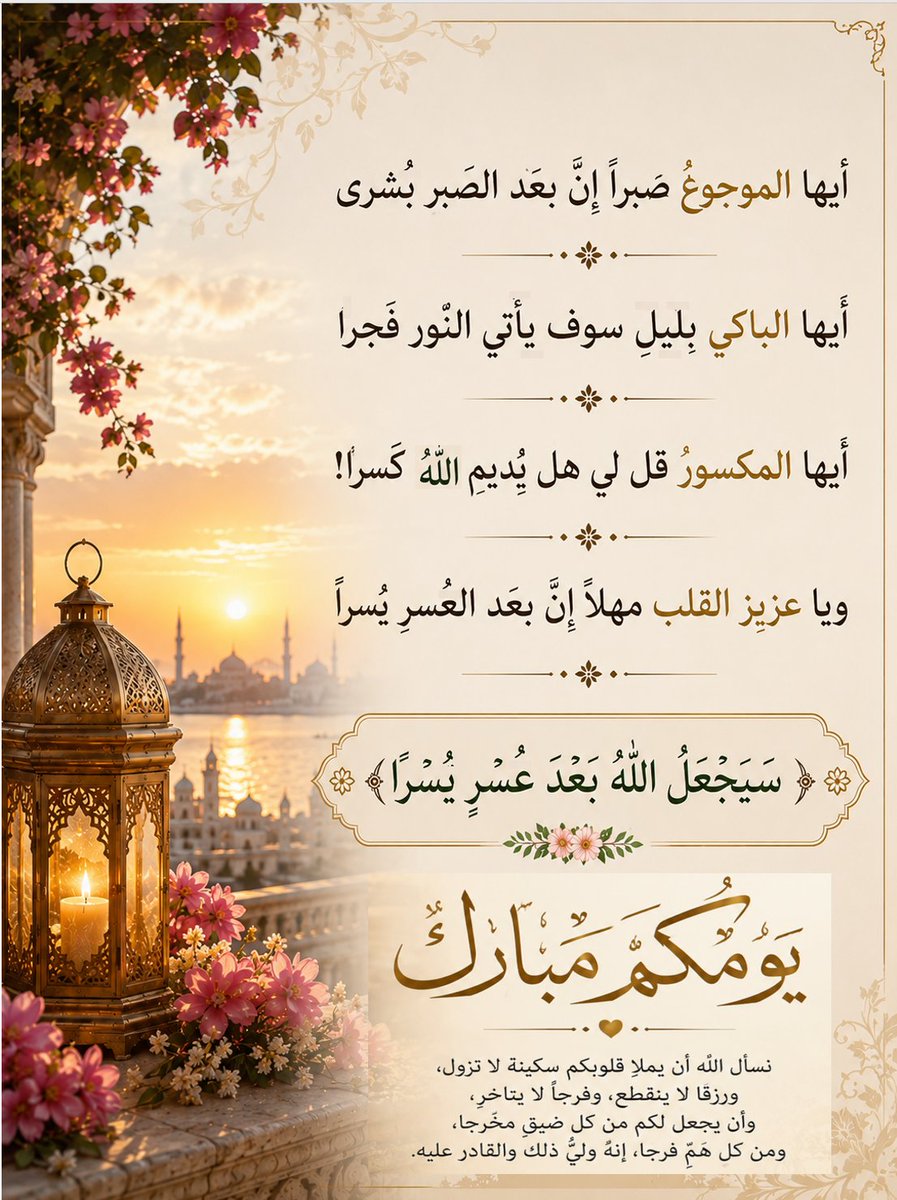 أيها الموجوعُ صَبراً إِنَّ بعَد الصَبر بُشرى
أَيها الباكي بِليلِ سوف يأتي النَّور فَجرا
أَيها المكسورُ قل لي هل يُديمِ اللهُ كَسراً!
ويا عزيزِ القلب مهلاً إِنَّ بعَد العُسرِ يُسراً
﴿ سَيَجْعَلُ اللهُ بَعْدَ عُسْرٍ يُسْرًا ﴾
يَوْمُكُمْ مَبَارَكٌ
نسأل الله أن يملاِ قلوبكم سكينة لا تزول،
ورزقًا لا ينقطع، وفرجاً لا يتاخرِ،
وأن يجعل لكم من كل ضيقِ مخّرجا،
ومن كل هَمِّ فرجا، إنهُ وليُّ ذلك والقادر عليه.